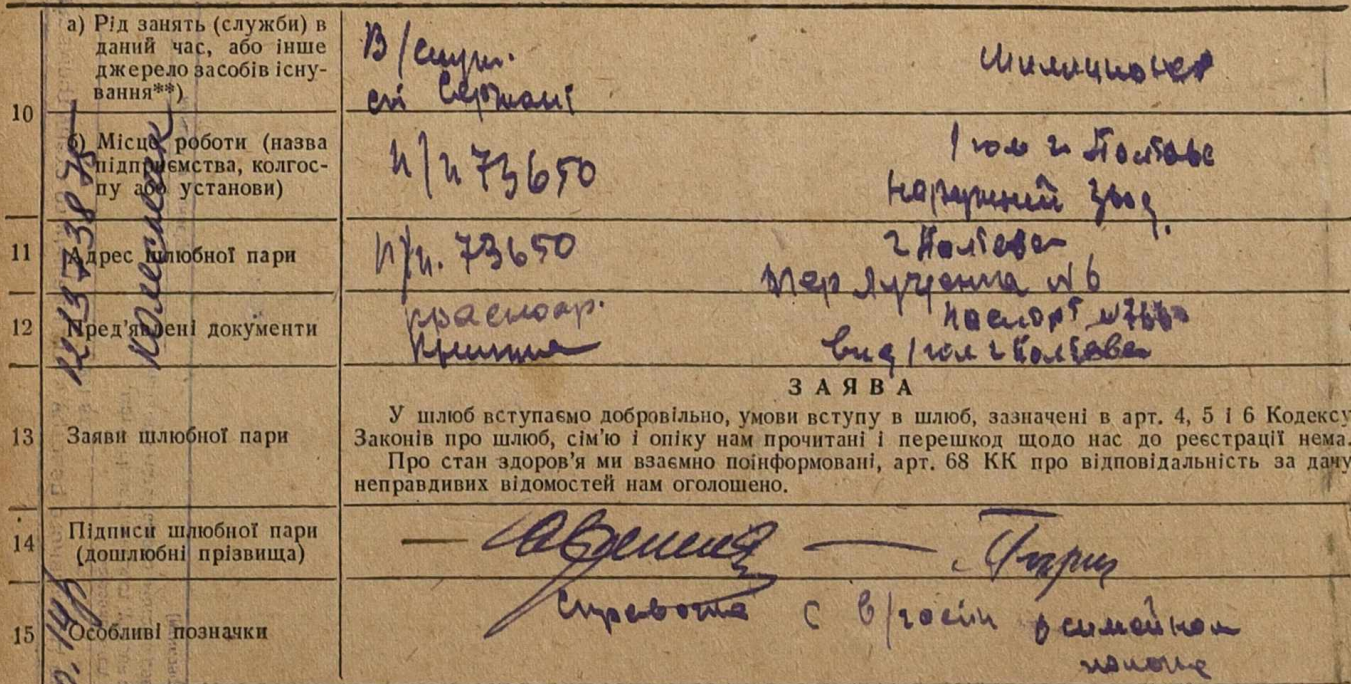 а) Рід занять (служби) в
даний час, або інше
джерело засобів існу-
вання**)
В/служ.
ст Сержант
Милиционер
10
б) Місце роботи (назва
підприємства, колгос-
пу або установи)
п/п 73650
1 гом г Полтава
наружний
11
Адрес шлюбної пари
п/п. 73650
г Полтава
пер Луценка №6
12
Пред'явлені документи
красноар.
книжка
паспорт
вид 1 гом г Полтава
ЗАЯВА
13
Заяви шлюбної пари
У шлюб вступаємо добровільно, умови вступу в шлюб, зазначені в арт. 4, 5 і 6 Кодексу
Законів про шлюб, сім'ю і опіку нам прочитані і перешкод щодо нас до реєстрації нема.
Про стан здоров'я ми взаємно поінформовані, арт. 68 КК про відповідальність за дачу
неправдивих відомостей нам оголошено.
14
Підписи шлюбної пари
(дошлюбні прізвища)
15
Особливі позначки
справка с в/части о